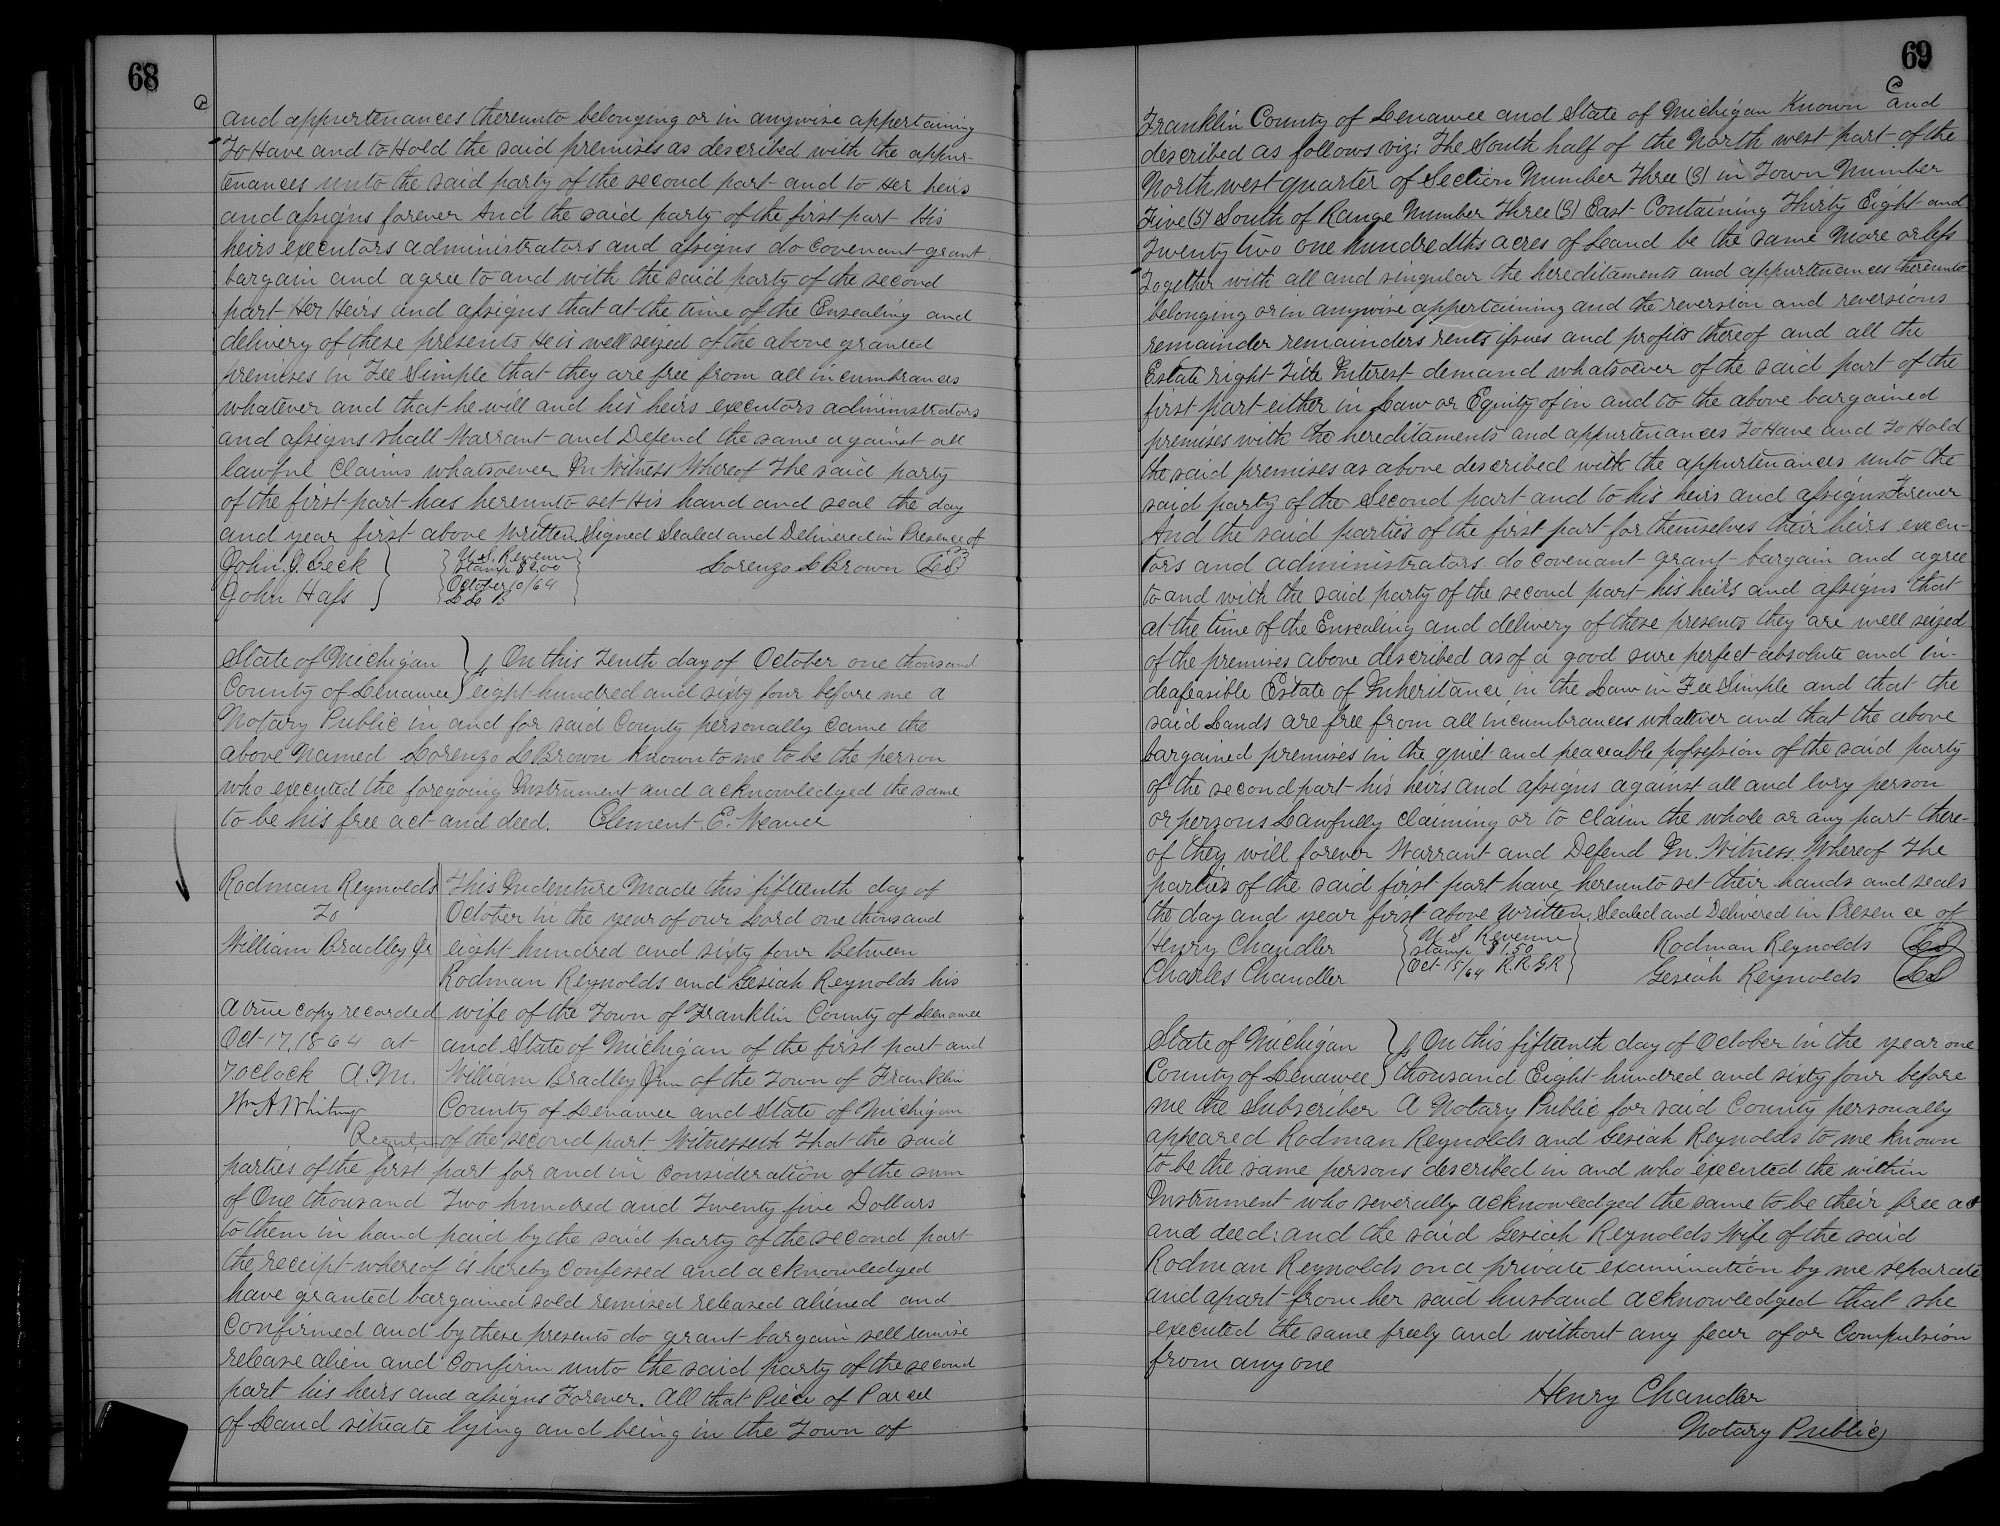 68
and appurtenances thereunto belonging or in anywise appertaining
To Have and to Hold the said premises as described with the appur-
tenances unto the said party of the second part and to Her heirs
and assigns forever And the said party of the first part His
heirs executors administrators and assigns do covenant grant
bargain and agree to and with the said party of the second
part Her Heirs and assigns that at the time of the Ensealing and
delivery of these presents He is well seized of the above granted
premises in Fee Simple that they are free from all incumbrances
whatever and that he will and his heirs executors administrators
and assigns shall Warrant and Defend the same against all
lawful Claims whatsoever In Witness Whereof The said party
of the first part has hereunto set His hand and seal the day
and year first above written Signed Sealed and Delivered in Presence of
John J. Beck } { U.S. Revenue } Lorenzo L Brown (LS)
stamp $2.00
John Hass } October 10/64
L L B
State of Michigan } ss On this Tenth day of October one thousand
County of Lenawee } eight hundred and sixty four before me a
Notary Public in and for said County personally came the
above named Lorenzo L Brown known to me to be the person
who executed the foregoing Instrument and acknowledged the same
to be his free act and deed. Clement E. Weaver
Rodman Reynolds
To
William Bradley Jr
A true copy recorded
Oct 17, 1864 at
7 oclock A.M.
Wm A Whitney
Register
This Indenture Made this fifteenth day of
October in the year of our Lord one thousand
eight hundred and sixty four Between
Rodman Reynolds and Gesiah Reynolds his
wife of the Town of Franklin County of Lenawee
and State of Michigan of the first part and
William Bradley Jun of the Town of Franklin
County of Lenawee and State of Michigan
of the second part Witnesseth That the said
parties of the first part for and in consideration of the sum
of One thousand Two hundred and Twenty five Dollars
to them in hand paid by the said party of the second part
the receipt whereof is hereby confessed and acknowledged
have granted bargained sold remised released aliened and
Confirmed and by these presents do grant bargain sell remise
release alien and Confirm unto the said Party of the second
part his heirs and assigns Forever. All that Piece of Parcel
of Land situate lying and being in the Town of
69
Franklin County of Lenawee and State of Michigan Known and
described as follows viz: The South half of the North west part of the
North west quarter of Section Number Three (3) in Town Number
Five (5) South of Range Number Three (3) East Containing Thirty Eight and
Twenty two one hundredths acres of Land be the same More or less
Together with all and singular the hereditaments and appurtenances thereunto
belonging or in anywise appertaining and the reversion and reversions
remainder remainders rents issues and profits thereof and all the
Estate right Title Interest demand whatsoever of the said part of the
first part either in Law or Equity of in and to the above bargained
premises with the hereditaments and appurtenances To Have and To Hold
the said premises as above described with the appurtenances unto the
said party of the Second part and to his heirs and assigns Forever
And the said parties of the first part for themselves their heirs execu-
tors and administrators do covenant grant bargain and agree
to and with the said party of the second part his heirs and assigns that
at the time of the Ensealing and delivery of these presents they are well seized
of the premises above described as of a good sure perfect absolute and in-
deafeasible Estate of Inheritance in the Law in Fee Simple and that the
said Lands are free from all incumbrances whatever and that the above
bargained premises in the quiet and peaceable possession of the said party
of the second part his heirs and assigns against all and evry person
or persons Lawfully claiming or to claim the whole or any part there-
of they will forever Warrant and Defend In Witness Whereof The
parties of the said first part have hereunto set their hands and seals
the day and year first above written, Sealed and Delivered in Presence of
Henry Chandler { U S Revenue } Rodman Reynolds (LS)
stamp $1.50
Charles Chandler { Oct 15/64 R.R G.R } Gesiah Reynolds (LS)
State of Michigan } ss On this fifteenth day of October in the year one
County of Lenawee } thousand Eight hundred and sixty four before
me the Subscriber A Notary Public for said County personally
appeared Rodman Reynolds and Gesiah Reynolds to me known
to be the same persons described in and who executed the within
Instrument who severally acknowledged the same to be their free act
and deed: and the said Gesiah Reynolds Wife of the said
Rodman Reynolds on a private examination by me separate
and apart from her said husband acknowledged that she
executed the same freely and without any fear of or Compulsion
from any one
Henry Chandler
Notary Public